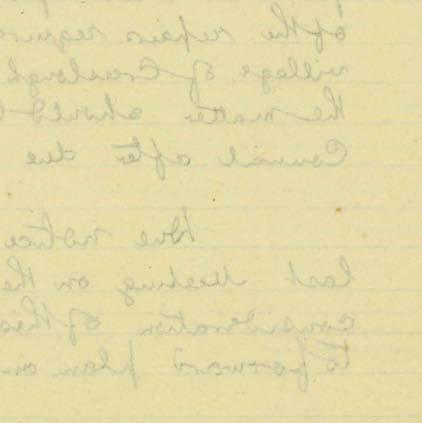 of the repairs require
village of Creeslough
the matter should
Council after due
notice
last meeting on the
consideration of
to forward plan